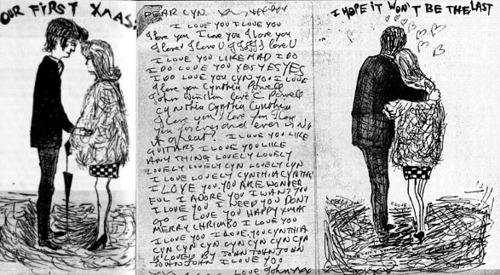 OUR FIRST XMAS!
DEAR CYN.
I LOVE YOU I LOVE YOU
I love you I love you I love you
I love you
I LOVE YOU LIKE MAD I DO
I DO LOVE YOU YES YES YES
I DO LOVE YOU CYN YOU I LOVE
I love you Cynthia Powell
John Winston love C. Powell
Cynthia Cynthia Cynthia
I love you I love you I love
you forever and ever isn't
it great? I LOVE YOU LIKE
GUITARS I LOVE YOU LIKE
ANYTHING LOVELY LOVELY
LOVELY LOVELY CYN LOVELY CYN
I LOVE LOVELY CYNTHIA CYNTHIA
I LOVE YOU. YOU ARE WONDER
FUL I ADORE YOU I WANT YOU
I LOVE YOU I NEED YOU DONT
GO I LOVE YOU HAPPY XMAS
MERRY CHRIMBO I LOVE YOU
I LOVE YOU I LOVE YOU CYNTHIA
CYN CYN CYN CYN CYN CYN CYN
IS LOVED BY JOHN JOHN JOHN
JOHN JOHN I LOVE YOU
LOVE John
I HOPE IT WON'T BE THE LAST